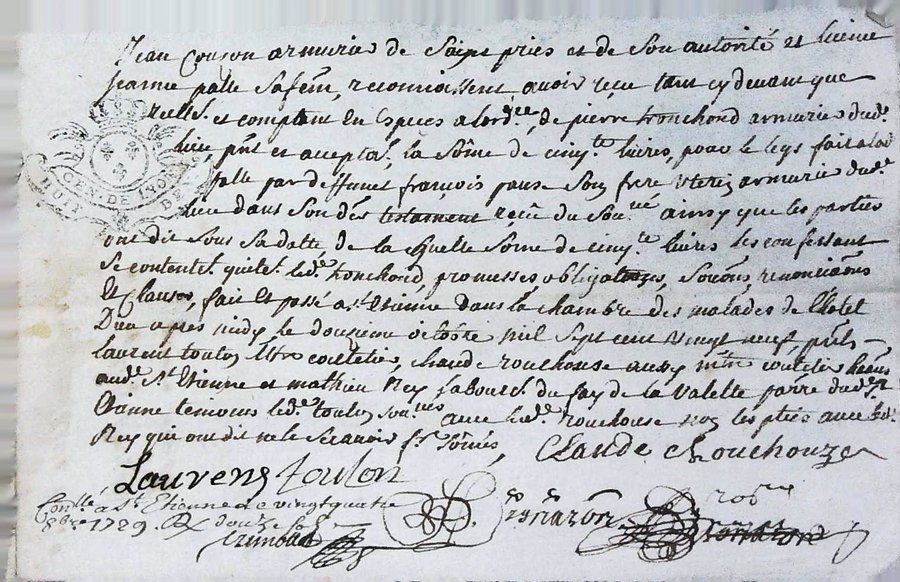 Jean Couson armurier de Saint priest et de Son autorité et licence
jeanne palle Sa fem, reconnaissent avoir reçu tant cy devant que
reellt. et comptant en Especes a lordre, de pierre Fronchond armurier dud.
lieu, pnt et acceptat. la Sôme de cinqte livres, pour le legs fait a lad
palle par deffunct françois Son frere Uterin armurier dud.
lieu dans Son der testament reçu du Sou.re ainsy que les parties
ont dit Sous Sa datte de la quelle Sôme de cinqte livres les confessant
Se contentt. quitet. led. Fronchond, promesses, obligations, Soumons, renonciaons
Et Clauses, fait Et passé a st Etienne dans la chambre des malades de l'hotel
Dieu apres midy le douzieme octobre mil Sept cent vingt neuf, pnts
laurent toulon Mtre coutelier, claude rouchouse aussy mtre coutelier hants
aud. St Etienne et mathieu Rey laboureur du fay de la Valette parre dud. St
Etienne temoins led. toulon Sou.nes avec led. rouchouse non les pties avec led.
Rey qui ont dit ne le Scavoir fe. Sômés,
CLaude Chouchouze
Laurens toulon
GEN. DE LYON
HUIT DE
Conllé a St Etienne ce vingtquatre
8bre 1729. R douze sols